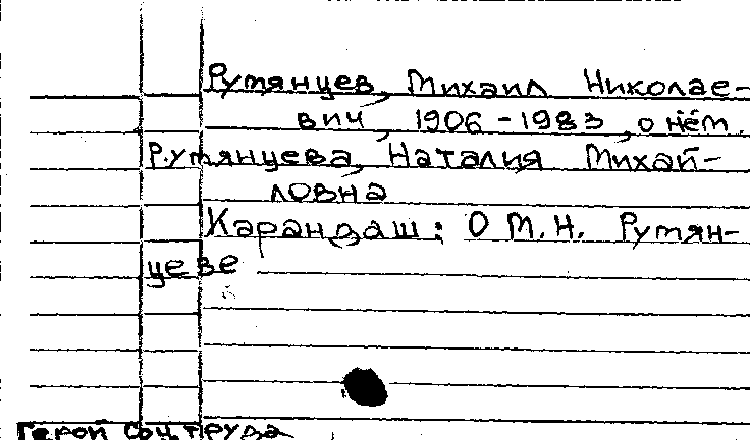 Румянцев, Михаил Николае-
вич, 1906-1983, о нём.
Румянцева, Наталия Михай-
ловна
Карандаш: О М.Н. Румян-
цеве
Герой Соц. труда